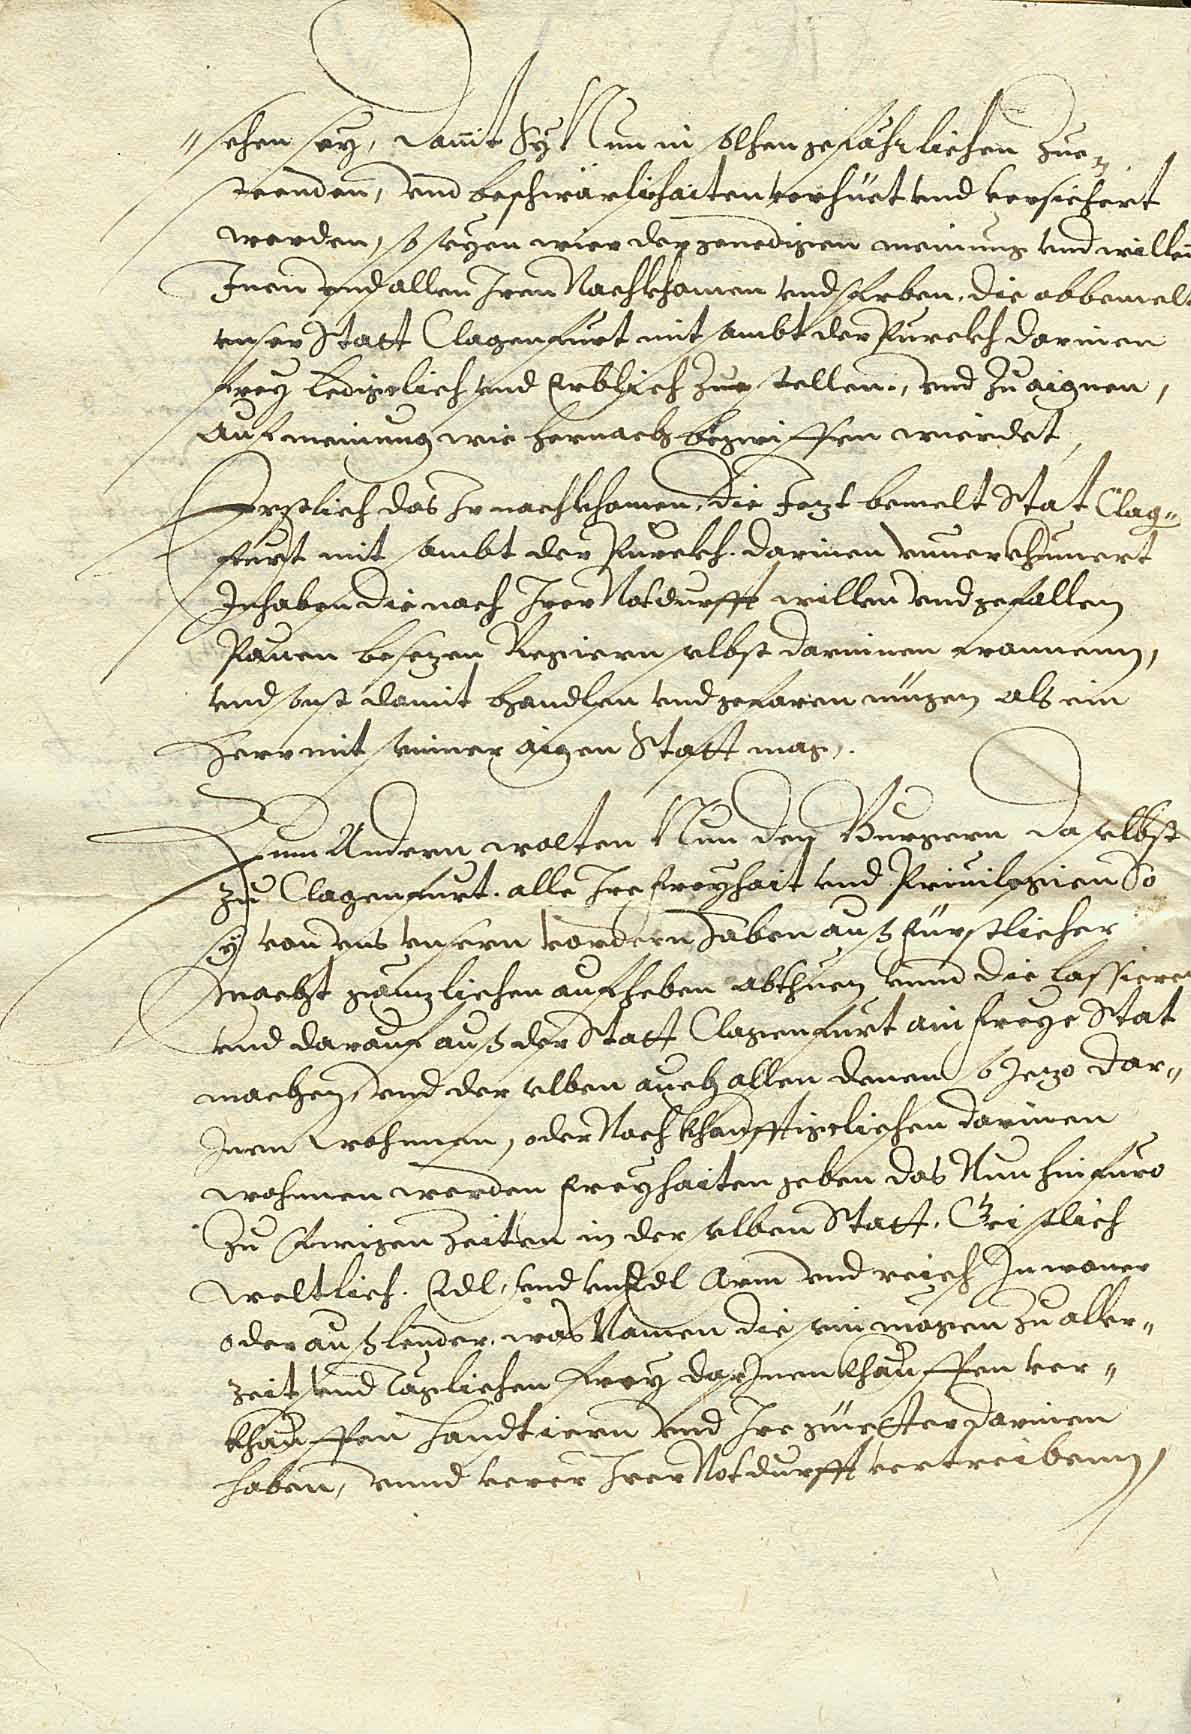 "sehen sey, damit Sy Nun in solhen gefährlichen Zue-
steenden, vnd beschwärlichaiten verhüet vnd versichert
werden, so seyen wier der genedigen meinung vnd willen
Inen vnd allen Iren Nachkhomen vnd Erben, die obbemelt
vnser Statt Clagenfurt mit sambt der Purckh darinen
frey Lediglich vnd Erblich Zue stellen, vnd Zu aignen,
Auf meinung wie hernach begriffen wierdet,
Erstlich das Ir nachkhomen, die Jezt bemelt Stat Clag-
furt mit sambt der Purckh darinen vnuerkhumert
Inhaben die nach Irer Notdurfft willen vnd gefallen
Pauen besezen Regiern selbst darinnen wonnenn,
vnd sonst damit handlen vnd gefaren mügen als ein
Herr mit seiner aigen Statt mag.
Zum Andern wolten Nun den Burgern daselbst
zu Clagenfurt alle Ire freyhait vnd Priuilegien So
sy von vns vnsern vordern haben auß Fürstlicher
macht gänzlichen aufheben abthuen vnnd die Cassieren
vnd darauf auß der Statt Clagenfurt ain freye Stat
machen, vnd derselben auch allen denen so Jezo dar-
Inen wohnnen, oder Nach khonfftigclichen darinen
wohnnen werden freyhaiten geben das Nun hinfüro
Zu Ewigen Zeiten in derselben Statt, Geistlich
weltlich, Edl, vnd vnEdl Arm vnd reich Inwoner
oder außlender, was Namen die sein mögen Zu aller-
zeit vnd täglichen frey darInen khauffen ver-
khauffen handtiern vnd Ire güetter darinen
haben, vnnd Irer Notdurfft vertreibenn,